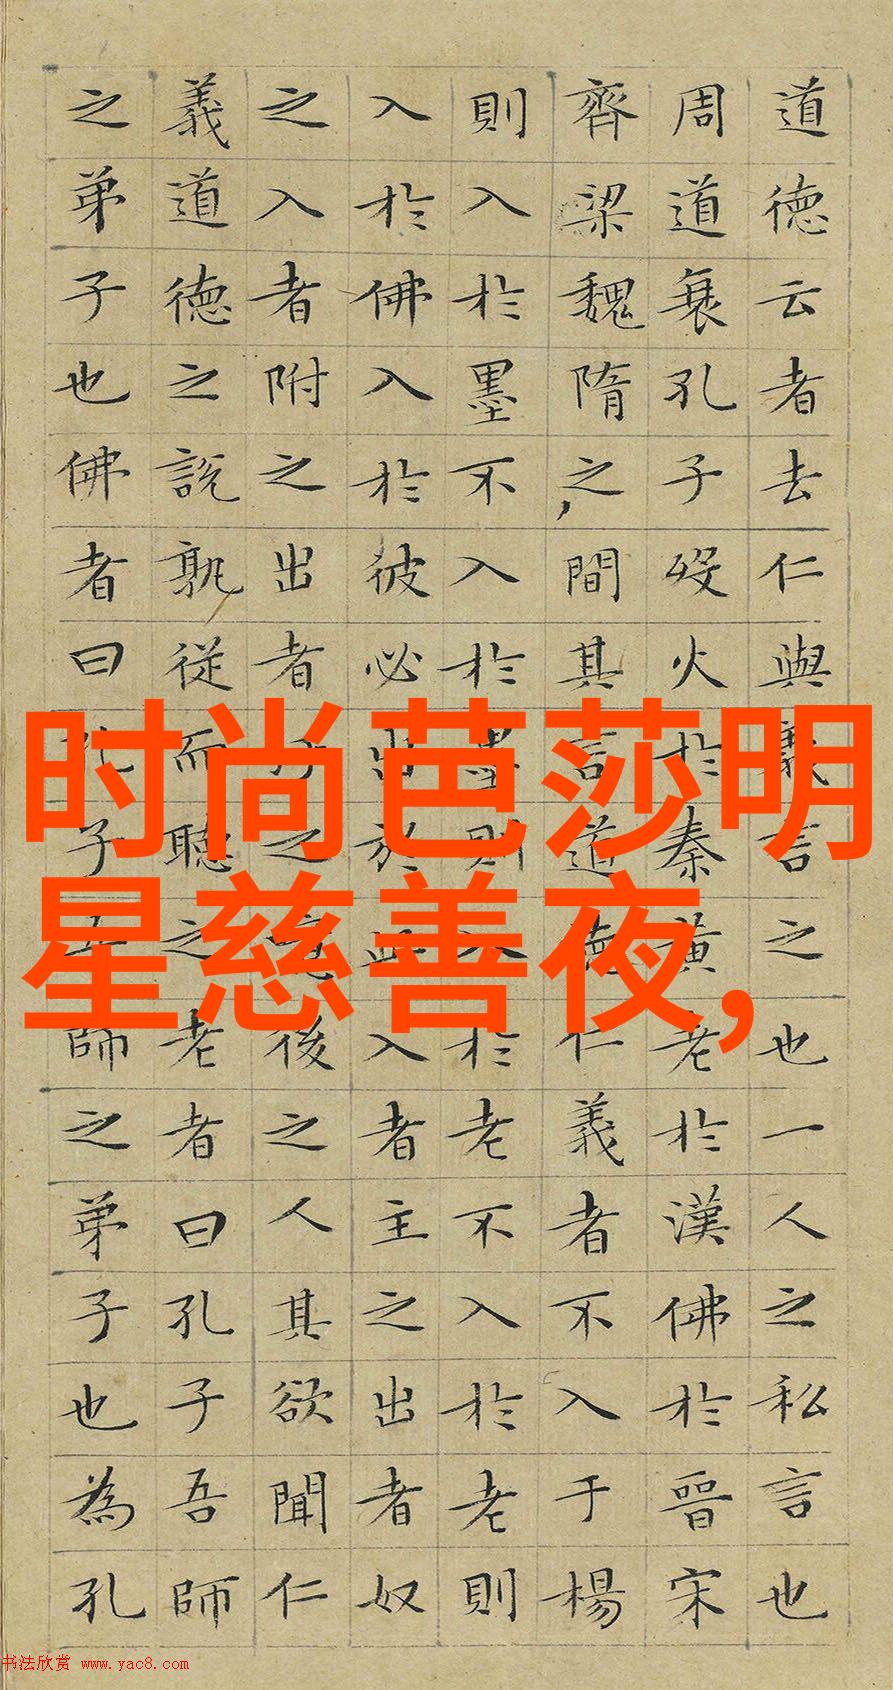 道德云者去仁與義言之也一人之私言也
周道衰孔子歿火於秦黃老於漢佛於晉宋
齊梁魏隋之間其言道德仁義者不入于楊
則入於墨不入於墨則入於老不入於老則
入於佛入於彼必出於此入者主之出者奴
之入者附之出者之後之人其欲聞仁
義道德之說孰從而聽之老者曰孔子吾師
之弟子也佛者曰孔子師之弟子也為孔
时尚芭莎明
星慈善夜,
书法欣赏 www.yac8.com